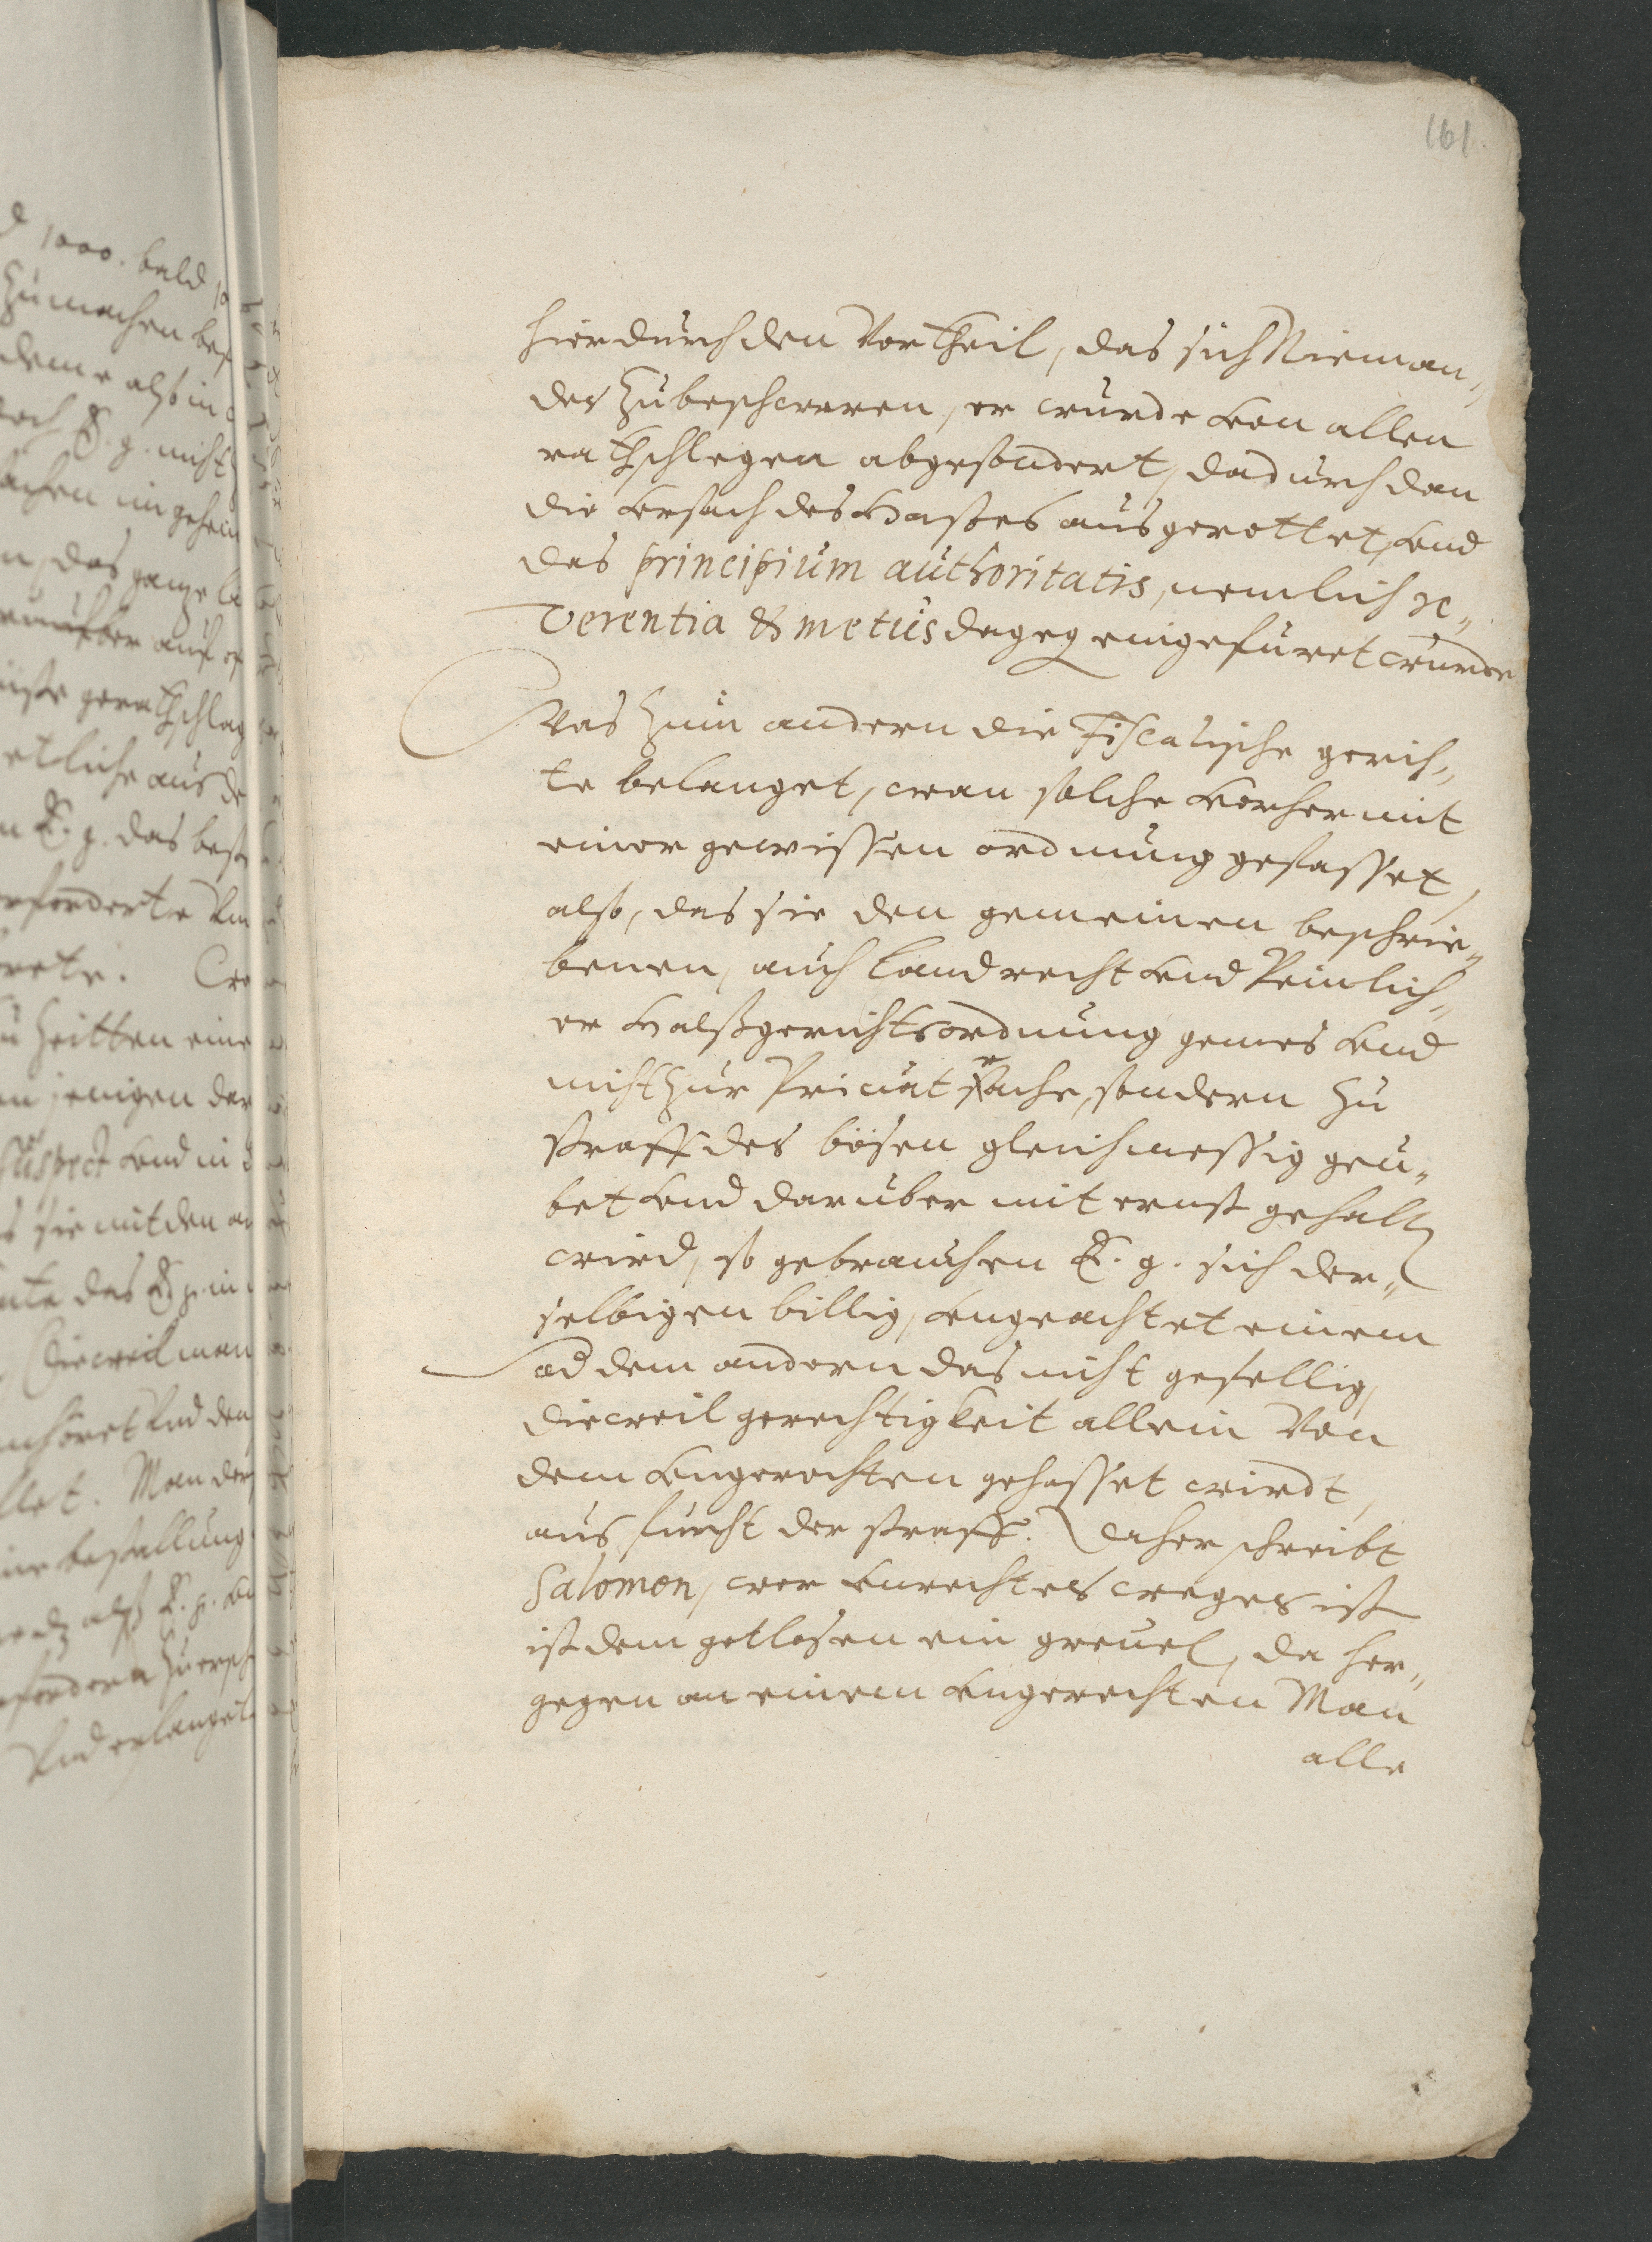 161.
hierdurch den Vortheil, das sich Nieman„
des Zubeschweren, er wurde von allen
rathschlegen abgesondert, dadurch dan
die vrsach des Hasses ausgerottet, vnd
das principium authoritatis, nemlich re„
verentia & metus dageg eingefuret wurde
Was Zum andern die Fiscalische gerich„
te belanget, wan solche vorher mit
einer gewissen ordnung gefasset,
also, das sie den gemeinen beschrie„
benen, auch Landrecht vnd Peinlich„
er Halßgerichtsordnung gemes vnd
nicht Zur Privat rache, sondern Zu
straff des bösen gleichmessig geu„
bet vnd daruber mit ernst gehalt
wird, so gebrauchen E. g. sich der„
selbigen billig, vngeachtet einem
od dem andern das nicht gefellig,
dieweil gerechtigkeit allein Von
dem vngerechten gehasset wirdt,
aus furcht der straff. Daher schreibt
Salomon, wer vnrechtes weges ist
ist dem gotlosen ein greuel, da her„
gegen an einem vngerechten Man
alle